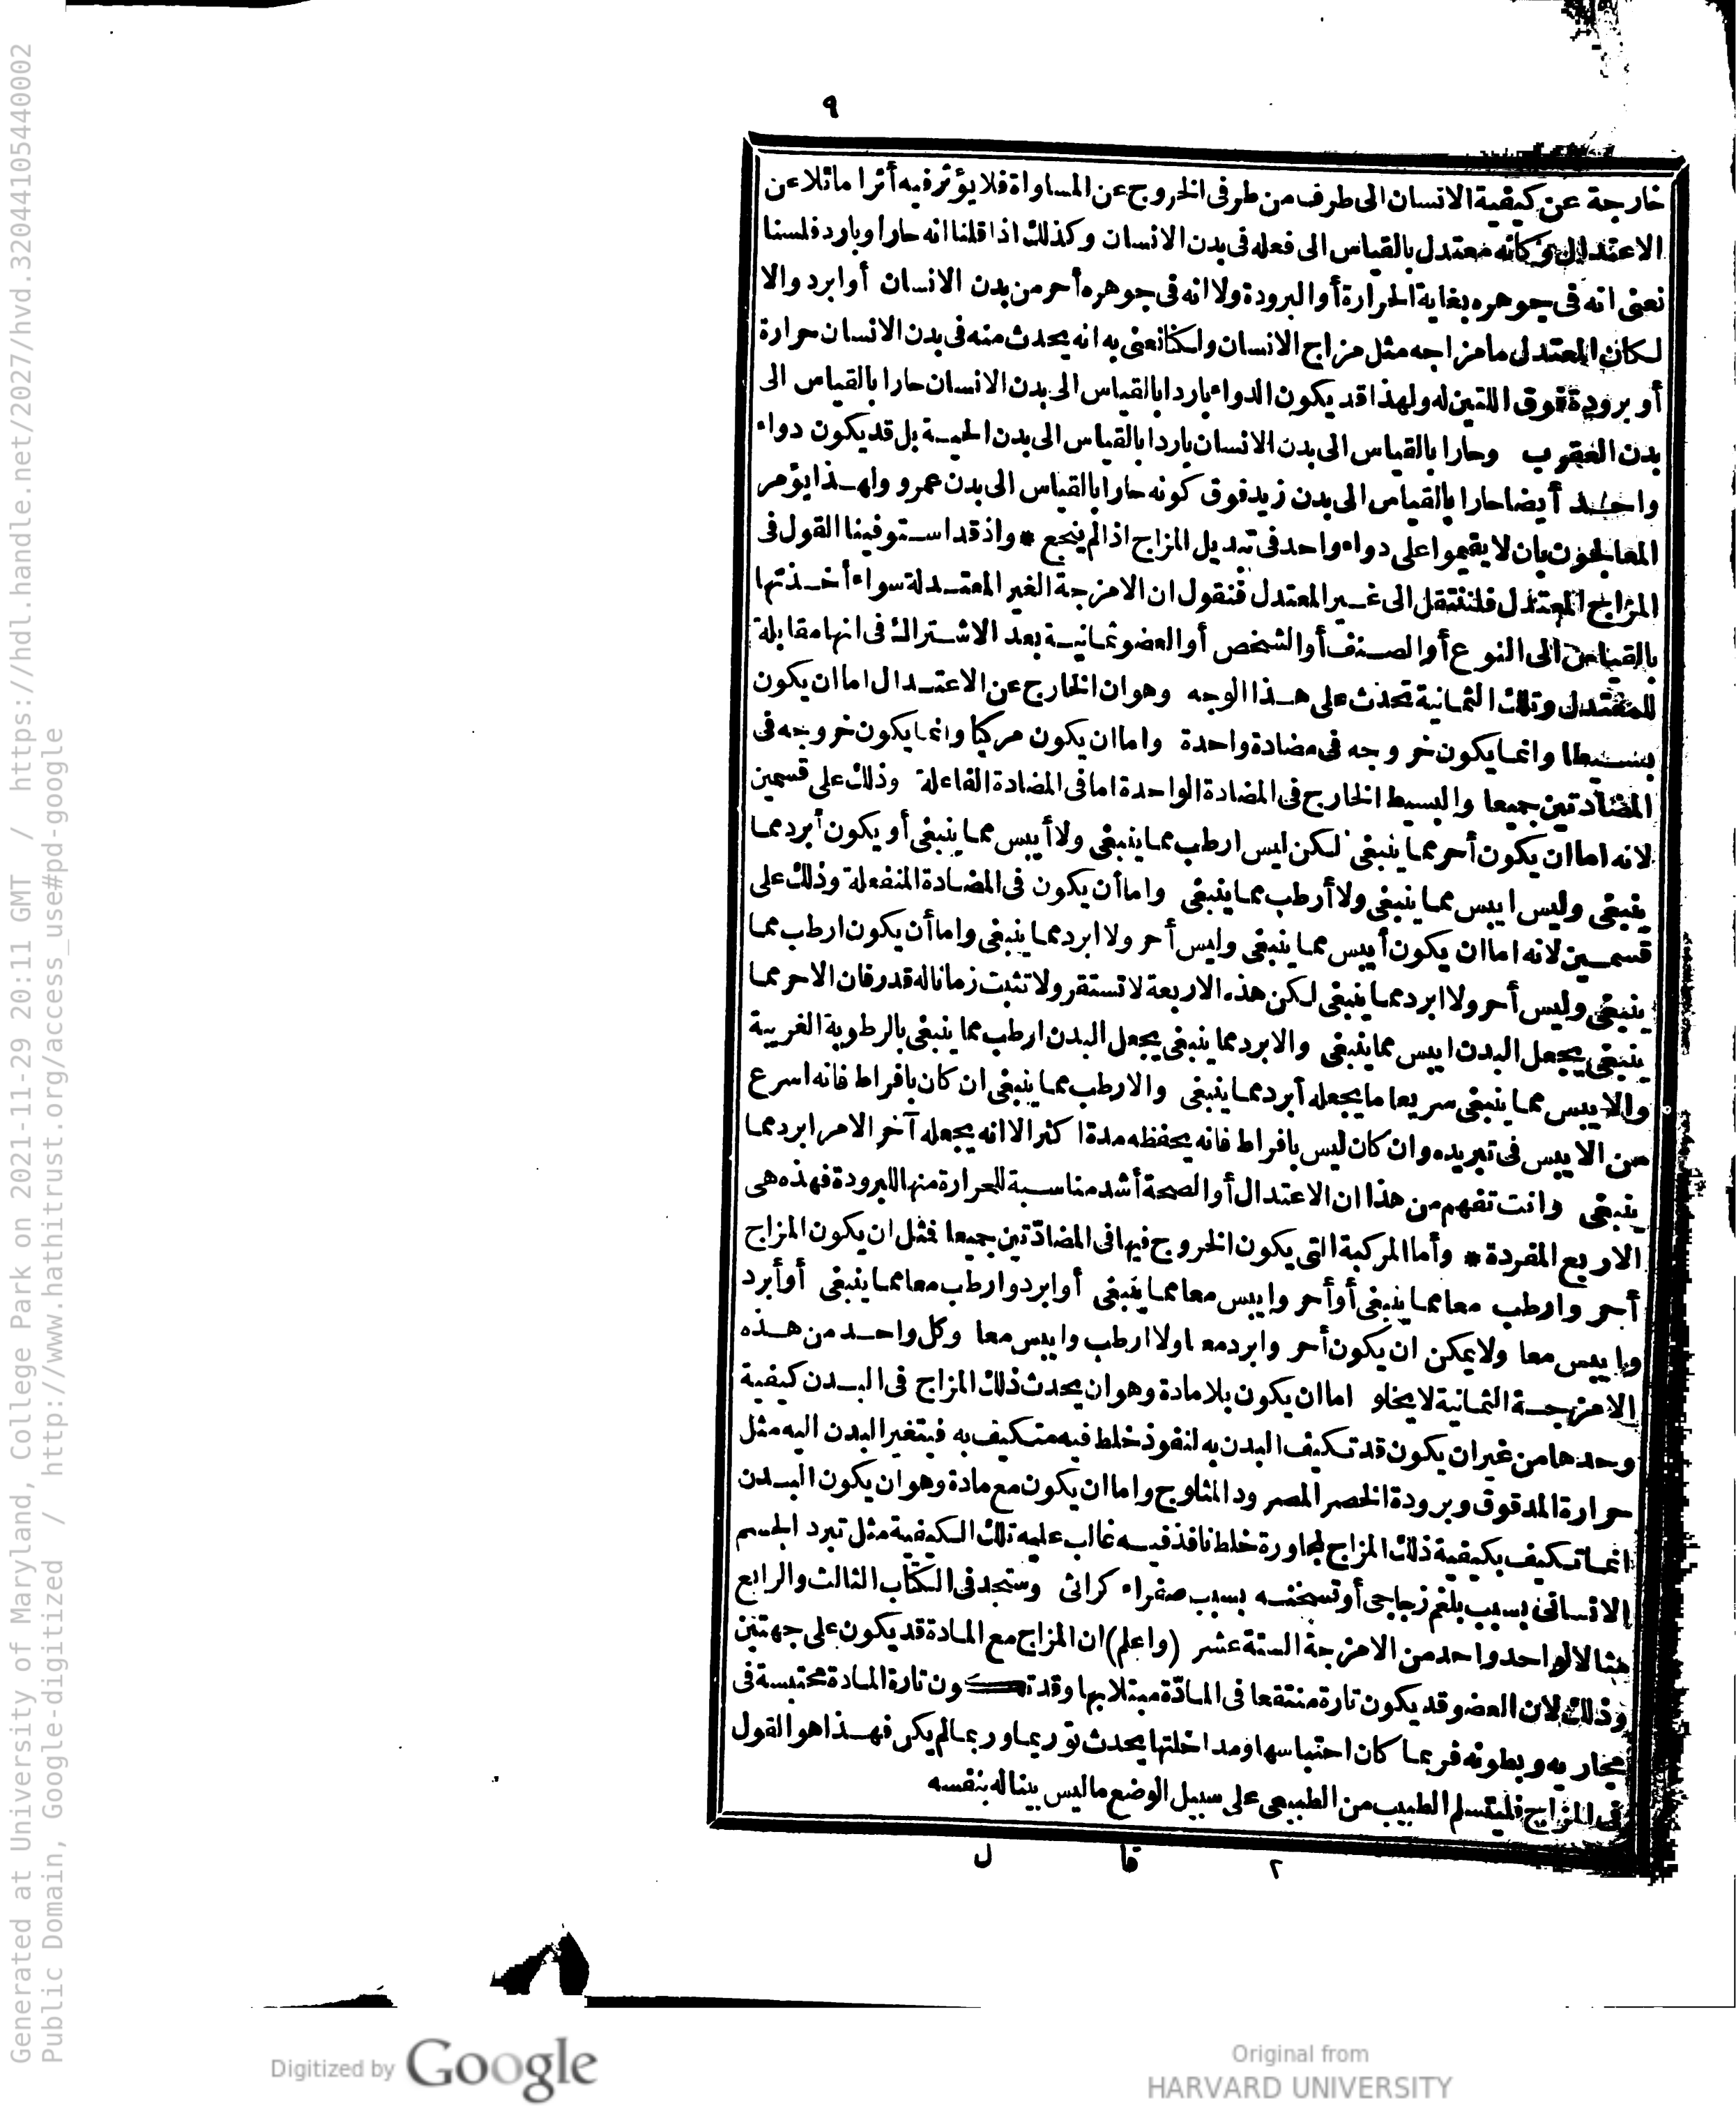 ٩
خارجة عن كيفية الانسان الى طرف من طرفى الخروج عن المساواة فلا يؤثر فيه أثرا مائلا عن
الاعتدال وكأنه معتدل بالقياس الى فعله فى بدن الانسان وكذلك اذا قلنا انه حار أو بارد فلسنا
نعنى انه فى جوهره بغاية الحرارة أو البرودة ولا انه فى جوهره أحر من بدن الانسان أو ابرد والا
لكان المعتدل ما مزاجه مثل مزاج الانسان ولكنا نعنى به انه يحدث منه فى بدن الانسان حرارة
أو برودة فوق اللتين له ولهذا قد يكون الدواء باردا بالقياس الى بدن الانسان حارا بالقياس الى
بدن العقرب وحارا بالقياس الى بدن الانسان باردا بالقياس الى بدن الحية بل قد يكون دواء
واحد أيضا حارا بالقياس الى بدن زيد فوق كونه حارا بالقياس الى بدن عمرو ولهذا يؤمر
المعالجون بان لا يقيموا على دواء واحد فى تبديل المزاج اذا لم ينجع * واذ قد استوفينا القول فى
المزاج المعتدل فلننتقل الى غير المعتدل فنقول ان الامزجة الغير المعتدلة سواء أخذتها
بالقياس الى النوع أو الصنف أو الشخص أو العضو ثمانية بعد الاشتراك فى انها مقابلة
للمعتدل وتلك الثمانية تحدث على هذا الوجه وهو ان الخارج عن الاعتدال اما ان يكون
بسيطا وانما يكون خروجه فى مضادة واحدة واما ان يكون مركبا وانما يكون خروجه فى
المضادتين جميعا والبسيط الخارج فى المضادة الواحدة اما فى المضادة الفاعلة وذلك على قسمين
لانه اما ان يكون أحر مما ينبغى لكن ليس ارطب مما ينبغى ولا أيبس مما ينبغى أو يكون أبرد مما
ينبغى وليس ايبس مما ينبغى ولا أرطب مما ينبغى واما أن يكون فى المضادة المنفعلة وذلك على
قسمين لانه اما ان يكون أيبس مما ينبغى وليس أحر ولا ابرد مما ينبغى واما أن يكون ارطب مما
ينبغى وليس أحر ولا ابرد مما ينبغى لكن هذه الاربعة لا تستقر ولا تثبت زمانا له قدر فان الاحر مما
ينبغى يجعل البدن ايبس مما ينبغى والابرد مما ينبغى يجعل البدن ارطب مما ينبغى بالرطوبة الغريبة
والايبس مما ينبغى سريعا ما يجعله أبرد مما ينبغى والارطب مما ينبغى ان كان بافراط فانه اسرع
من الايبس فى تبريده وان كان ليس بافراط فانه يحفظه مدة اكثر الا انه يجعله آخر الامر ابرد مما
ينبغى وانت تفهم من هذا ان الاعتدال أو الصحة أشد مناسبة للحرارة منها للبرودة فهذه هى
الاربع المفردة * وأما المركبة التى يكون الخروج فيها فى المضادّتين جميعا فمثل ان يكون المزاج
أحر وارطب معا مما ينبغى أو أحر وايبس معا مما ينبغى أو ابرد وارطب معا مما ينبغى أو أبرد
وايبس معا ولا يمكن ان يكون أحر وابرد معا ولا ارطب وايبس معا وكل واحد من هذه
الامزجة الثمانية لا يخلو اما ان يكون بلا مادة وهو ان يحدث ذلك المزاج فى البدن كيفية
وحدها من غير ان يكون قد تكيف البدن به لنفوذ خلط فيه متكيف به فيتغير البدن اليه مثل
حرارة المدقوق وبرودة الخصر المصرود المثلوج واما ان يكون مع مادة وهو ان يكون البدن
انما تكيف بكيفية ذلك المزاج لمجاورة خلط نافذ فيه غالب عليه تلك الكيفية مثل تبرد الجسم
الانسانى بسبب بلغم زجاجى أو تسخنه بسبب صفراء كراثى وستجد فى الكتاب الثالث والرابع
مثالا لواحد واحد من الامزجة الستة عشر (واعلم) ان المزاج مع المادة قد يكون على جهتين
وذلك لان العضو قد يكون تارة منتقعا فى المادّة مبتلا بها وقد تكون تارة المادة محتبسة فى
مجاريه وبطونه فربما كان احتباسها ومداخلتها يحدث توريما وربما لم يكن فهذا هو القول
فى المزاج فليتسلم الطبيب من الطبيعى على سبيل الوضع ما ليس بينا له بنفسه
٢ قا ل
Generated at University of Maryland, College Park on 2021-11-29 20:11 GMT / https://hdl.handle.net/2027/hvd.32044105440002
Public Domain, Google-digitized / http://www.hathitrust.org/access_use#pd-google
Digitized by Google
Original from
HARVARD UNIVERSITY